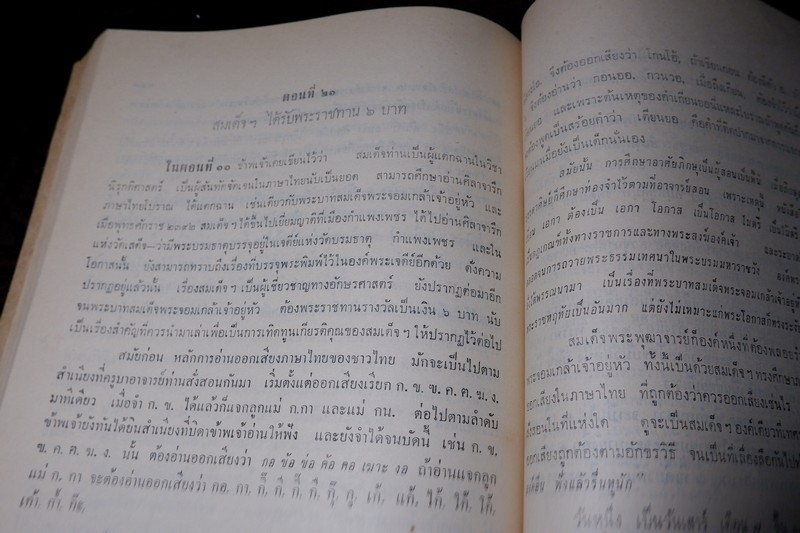 ตอนที่ ๒๐
สมเด็จฯ ได้รับพระราชทาน ๖ บาท
ในตอนที่ ๑๑ ข้าพเจ้าเคยเขียนไว้ว่า สมเด็จท่านเป็นผู้แตกฉานในวิชา
นิรุกติศาสตร์ เป็นผู้สันทัดจัดเจนในภาษาไทยนับเป็นยอด สามารถศึกษาอ่านศิลาจารึก
ภาษาไทยโบราณ ได้แตกฉาน เช่นเดียวกับพระบาทสมเด็จพระจอมเกล้าเจ้าอยู่หัว และ
เมื่อพุทธศักราช ๒๓๙๒ สมเด็จฯ ได้ขึ้นไปเยี่ยมญาติที่เมืองกำแพงเพชร ได้ไปอ่านศิลาจารึก
แห่งวัดเสด็จ—ว่ามีพระบรมธาตุบรรจุอยู่ในเจดีย์แห่งวัดบรมธาตุ กำแพงเพชร และใน
โอกาสนั้น ยังสามารถทราบถึงเรื่องที่บรรจุพระพิมพ์ไว้ในองค์พระเจดีย์อีกด้วย ดั่งความ
ปรากฏอยู่แล้วนั้น เรื่องสมเด็จฯ เป็นผู้เชี่ยวชาญทางอักษรศาสตร์ ยังปรากฏต่อมาอีก
จนพระบาทสมเด็จพระจอมเกล้าเจ้าอยู่หัว ต้องพระราชทานรางวัลเป็นเงิน ๖ บาท นับ
เป็นเรื่องสำคัญที่ควรนำมาเล่าเพื่อเป็นการเทิดทูนเกียรติคุณของสมเด็จฯ ให้ปรากฏไว้ต่อไป
สมัยก่อน หลักการอ่านออกเสียงภาษาไทยของชาวไทย มักจะเป็นไปตาม
สำเนียงที่ครูบาอาจารย์ท่านสั่งสอนกันมา เริ่มตั้งแต่ออกเสียงเรียก ก. ข. ฃ. ค. ฅ. ฆ. ง.
มาทีเดียว เมื่อจำ ก. ข. ได้แล้วก็แจกลูกแม่ ก.กา และแม่ กน. ต่อไปตามลำดับ
ข้าพเจ้ายังทันได้ยินสำเนียงที่บิดาข้าพเจ้าอ่านให้ฟัง และยังจำได้จนบัดนี้ เช่น ก. ข.
ฃ. ค. ฅ. ฆ. ง. นั้น ต้องอ่านออกเสียงว่า กอ ข้อ ข่อ ค้อ คอ เฆาะ งอ ถ้าอ่านแจกลูก
แม่ ก. กา จะต้องอ่านออกเสียงว่า กอ, กา,
จึงต้องออกเสียงว่า โกนโอ้,
จึงต้องอ่านว่า ก่อนออ, กวนวอ, เมื่อถึงเกียน,
และเพราะต้นเหตุของคำเกียนยอนี้
พูดเป็นสร้อยคำว่า เคียนยอ คือคำที่ติดปาก
มาเมื่อยังเป็นเด็กนั่นเอง
สมัยนั้น การศึกษาอาศัยภิกษุเป็นผู้สอนเป็นพื้น
ภิกษุก็ศึกษาท่องจำไว้ตามที่อาจารย์สอน เพราะเหตุนี้
เอน ต้องเป็น เอกา โอกาส เป็นโอกาส ไมตรี เป็นไมตรี
ทั้งทางราชการและทางพระสงฆ์องค์เจ้า
จนการถวายพระธรรมเทศนาในพระบรมมหาราชวัง องค์พระ
ได้พรรณนามา เป็นเรื่องที่พระบาทสมเด็จพระจอมเกล้าเจ้าอยู่หัว
พระราชหฤทัยเป็นอันมาก แต่ยังไม่เหมาะแก่พระโอกาสที่ทรง
สมเด็จพระพุฒาจารย์ก็องค์หนึ่งที่ต้องพลอย
พระจอมเกล้าเจ้าอยู่หัว ทั้งนี้เป็นด้วยสมเด็จฯ ทรงศึกษา
ออกเสียงในภาษาไทย ที่ถูกต้องว่าควรออกเสียงเช่นไร
สอนในที่แห่งใด ดูจะเป็นสมเด็จฯ องค์เดียวที่เทศ
ออกเสียงถูกต้องตามอักขรวิธี จนเป็นที่เลื่องลือกันไป
ฟังแล้วรื่นหูนัก"
วันหนึ่ง เป็นวันเสาร์